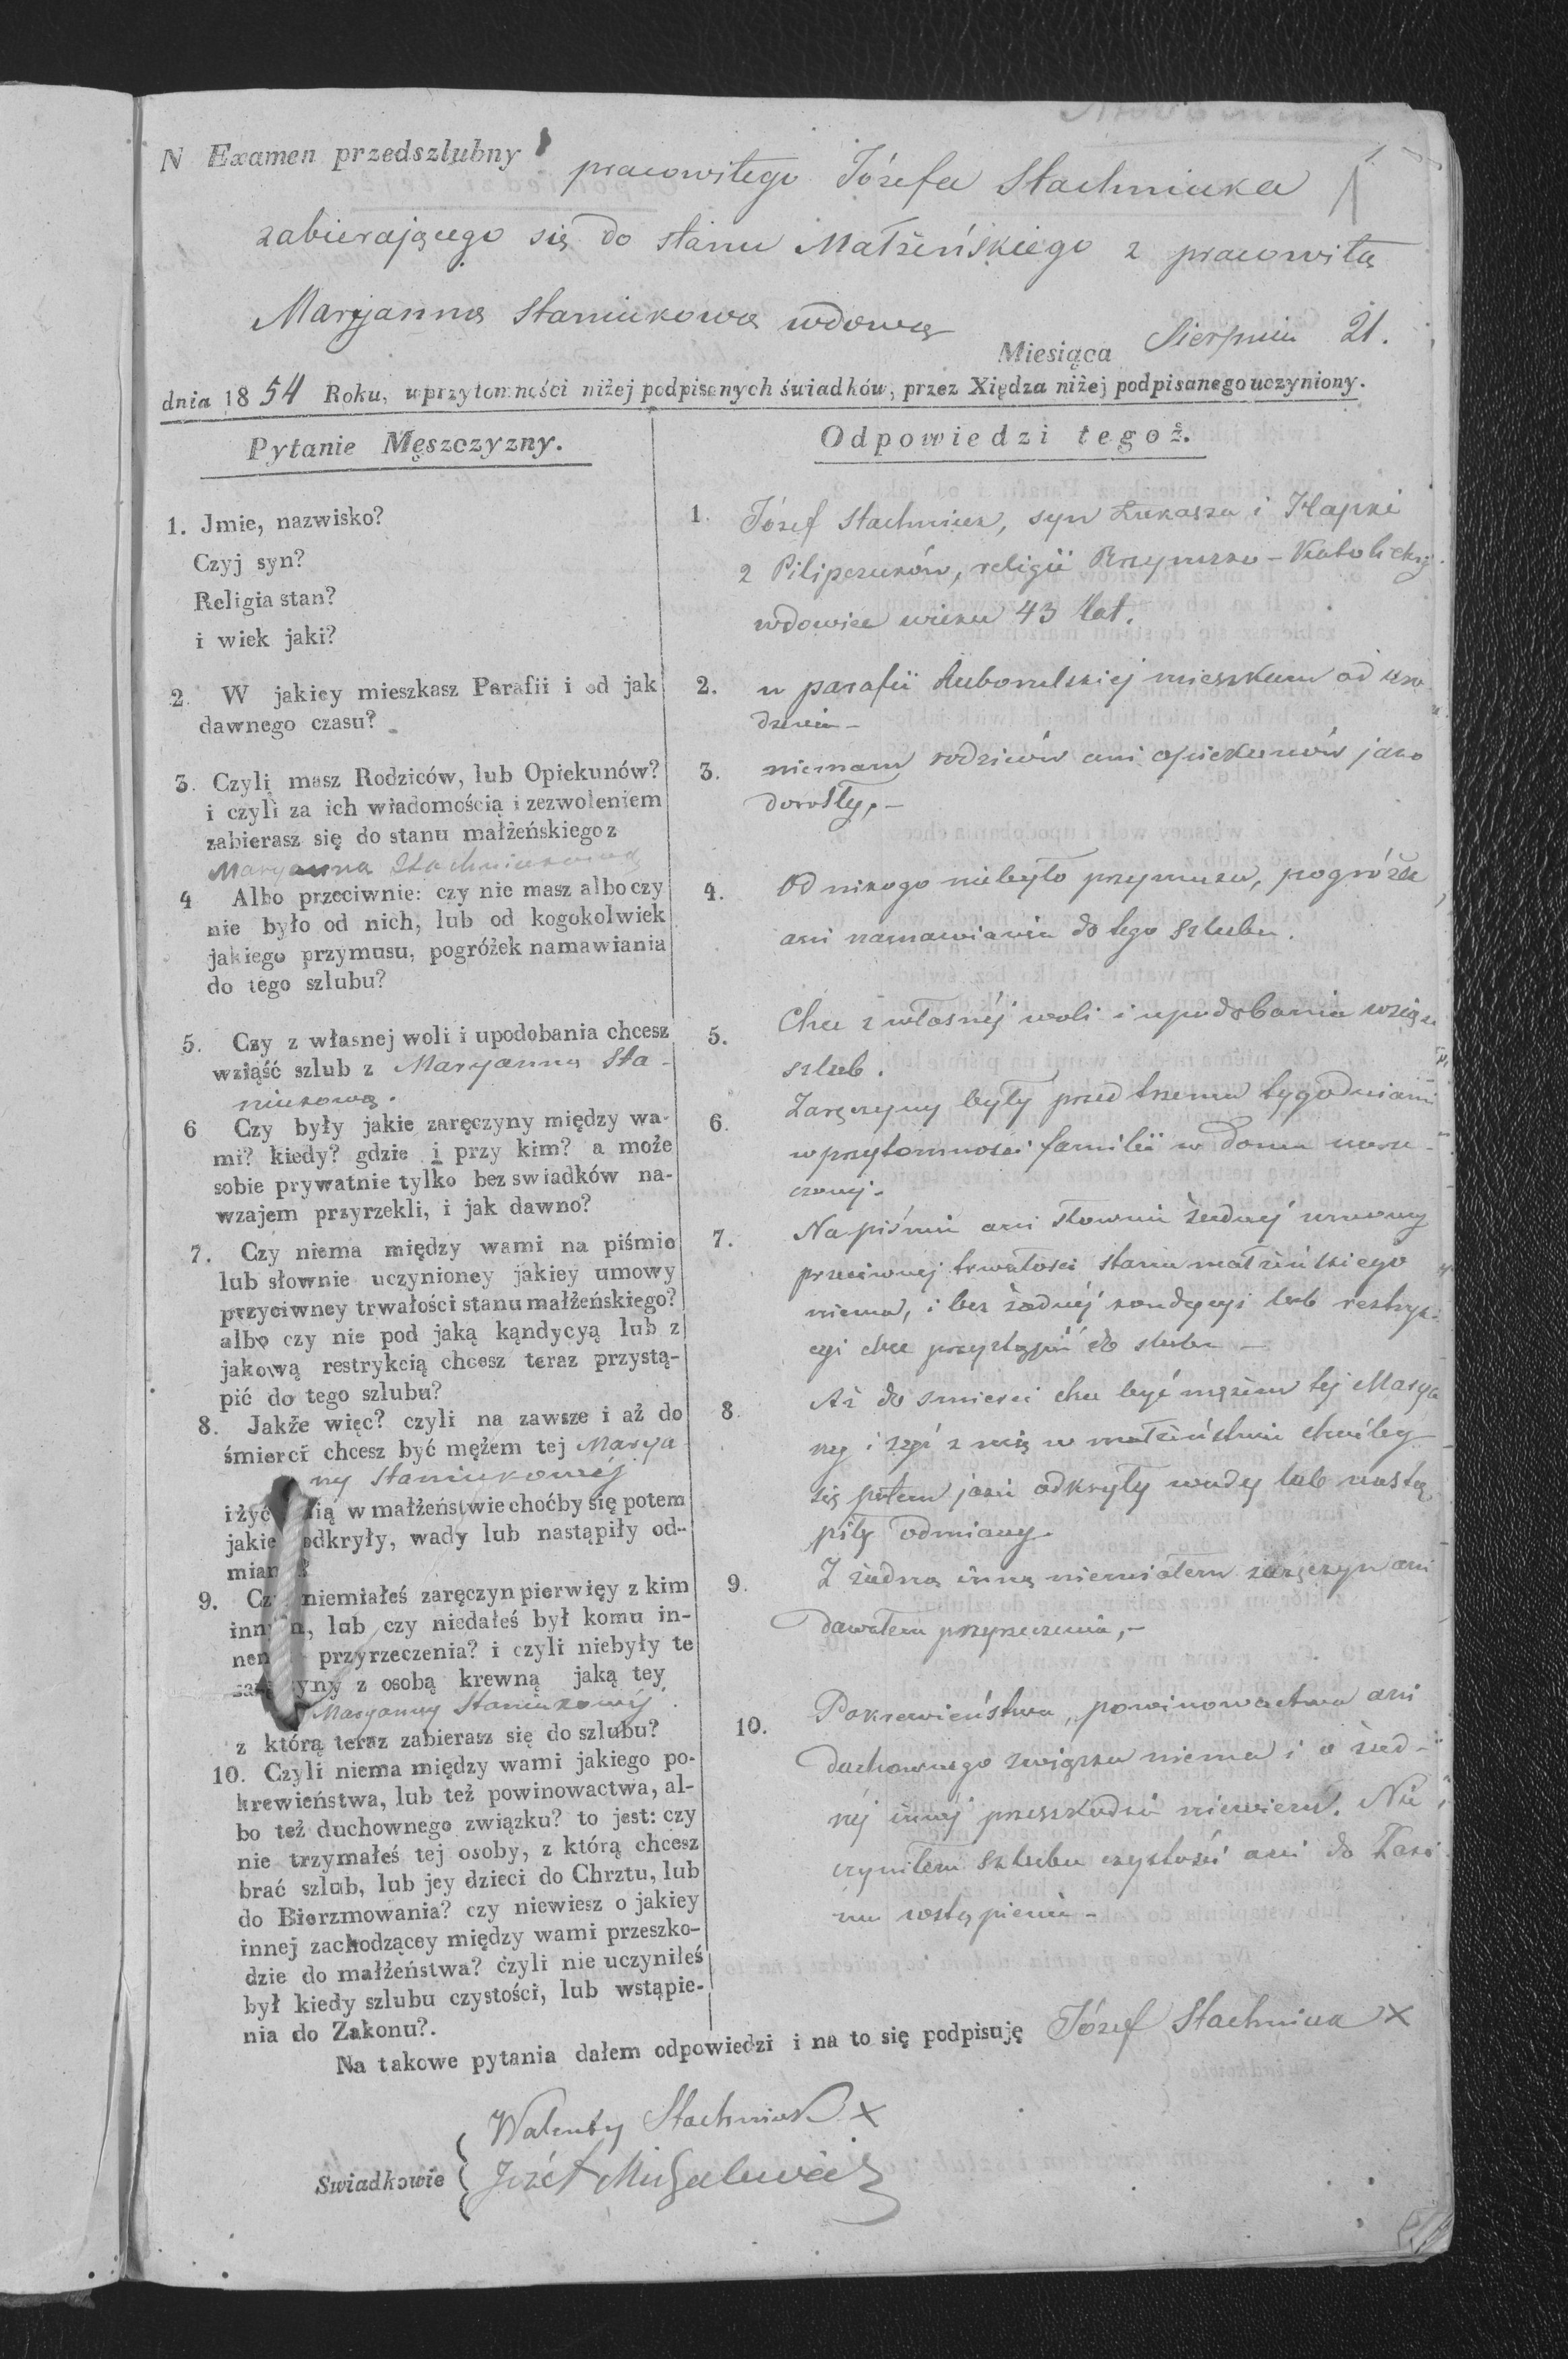 N Examen przedszlubny pracowitego Józefa Stachniuka
zabierającego się do stanu Małżeńskiego z pracowitą
Maryanną Staniukową wdową
Miesiąca Sierpnia 21.
dnia 1854 Roku, w przytomności niżej podpisanych świadków, przez Xiędza niżej podpisanego uczyniony.
Pytanie Męszczyzny.
1. Jmie, nazwisko?
Czyj syn?
Religia stan?
i wiek jaki?
2. W jakiey mieszkasz Parafii i od jak
dawnego czasu?
3. Czyli masz Rodziców, lub Opiekunów?
i czyli za ich wiadomością i zezwoleniem
zabierasz się do stanu małżeńskiego z
Maryanna Stachniukowną
4 Albo przeciwnie: czy nie masz albo czy
nie było od nich, lub od kogokolwiek
jakiego przymusu, pogróżek namawiania
do tego szlubu?
5. Czy z własnej woli i upodobania chcesz
wziąść szlub z Maryanną Sta-
niukową.
6 Czy były jakie zaręczyny między wa-
mi? kiedy? gdzie i przy kim? a może
sobie prywatnie tylko bez swiadków na-
wzajem przyrzekli, i jak dawno?
7. Czy niema między wami na piśmie
lub słownie uczynioney jakiey umowy
przyciwney trwałości stanu małżeńskiego?
albo czy nie pod jaką kąndycyą lub z
jakową restrykcią chcesz teraz przystą-
pić do tego szlubu?
8. Jakże więc? czyli na zawsze i aż do
śmierci chcesz być mężem tej Marya
ny Staniukowej
i żyć nią w małżeństwie choćby się potem
jakie odkryły, wady lub nastąpiły od-
mian
9. niemiałeś zaręczyn pierwięy z kim
lub czy niedałeś był komu in-
przyrzeczenia? i czyli niebyły te
z osobą krewną jaką tey
Maryanny Staniukowej
z którą teraz zabierasz się do szlubu?
10. Czyli niema między wami jakiego po-
krewieństwa, lub też powinowactwa, al-
bo też duchownego związku? to jest: czy
nie trzymałeś tej osoby, z którą chcesz
brać szlub, lub jey dzieci do Chrztu, lub
do Bierzmowania? czy niewiesz o jakiey
innej zachodzącey między wami przeszko-
dzie do małżeństwa? czyli nie uczyniłeś
był kiedy szlubu czystości, lub wstąpie-
nia do Zakonu?.
Odpowiedzi tegoż.
1. Józef Stachniuk, syn Łukasza i Hapki
z Pilipczuków, religii Rzymsko-Katolickiej
wdowiec wieku 43 lat.
2. w parafii mieszkam od uro
dzenia-
3. niemam rodziców ani opiekunów jako
dorosły,-
4. Od nikogo niebyło przymusu, pogróżek
ani namawiania do tego szlubu.
5. Chce z własnéj woli i upodobania wziąść
szlub.
6. Zaręczyny były przed trzema tygodniami
w przytomności familii w domu narze-
czonej.
7. Na piśmie ani słownie żadnej umowy
przeciwnej trwałości stanu małżeńskiego
niema, i bez żadnej kondycyi lub restryk-
cyi chce przystąpić do szlubu
8. Aż do smierci chce być mężem tej Marya
ny i żyć z nią w małżeństwie choćby
się potem jakie odkryły wady lub nastą
piły odmiany.
9. Z żadną inną niemiałem zaręczyn ani
dawałem przyrzeczenia,-
10. Pokrewieństwa, powinowactwa ani
duchownego związku niema i o żad-
nej innej przeszkodzie niewiem. Nie
czyniłem szlubu czystości ani do Zako
nu wstąpienia-
Na takowe pytania dałem odpowiedzi i na to się podpisuję Józef Stachniuk X
Walenty Stachniuk X
Swiadkowie Józef